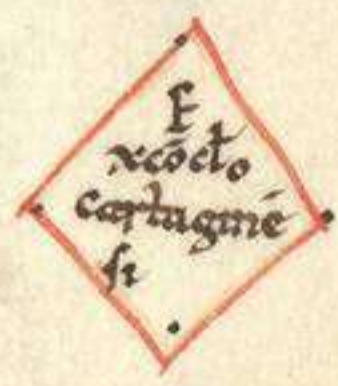 E
xcōcło
cartaginē
ſi